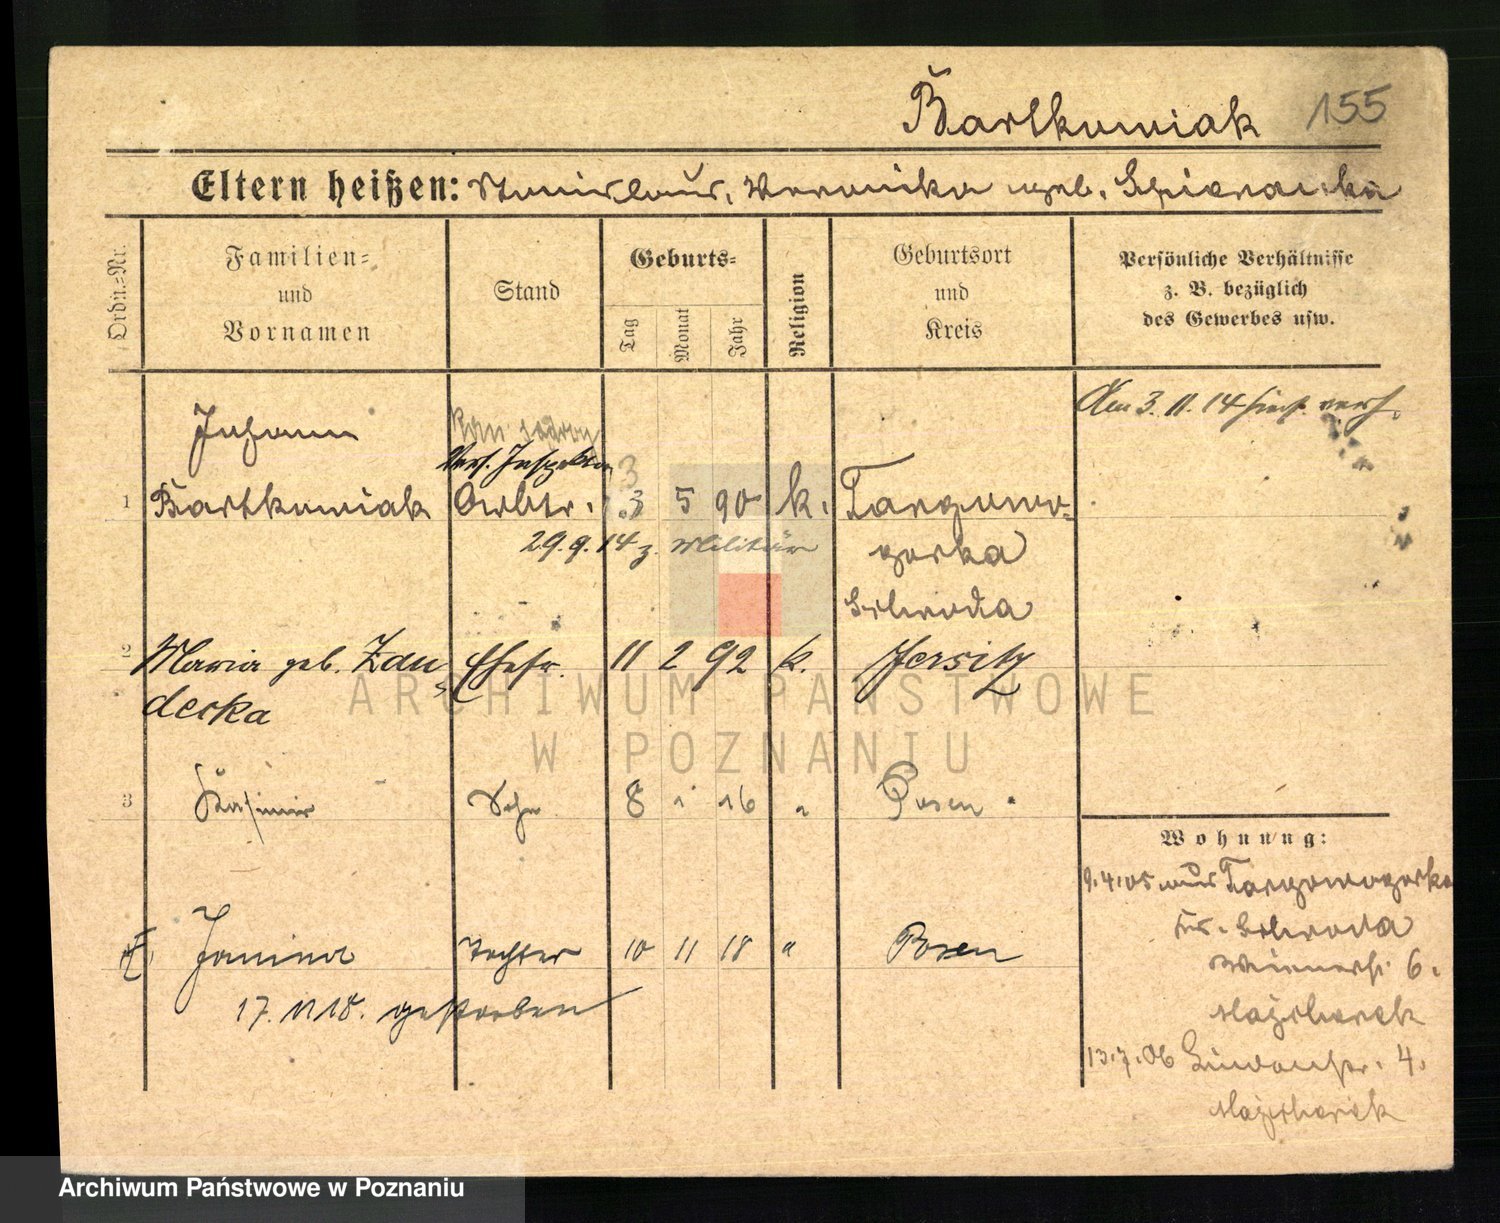 Bartkowiak 155
Eltern heißen: Stanislaus, Veronika geb.
Ordn.-Nr.
Familien-
und
Vornamen
Stand
Geburts-
Tag
Monat
Jahr
Religion
Geburtsort
und
Kreis
Persönliche Verhältnisse
z. B. bezüglich
des Gewerbes usw.
Am 3. 11. 14 hier verh.
Johann
Vers. Inspektor
3
1 Bartkowiak Arbtr. 3 5 90 k. Targowo-
29.9.14 z. Militär
gorka
Schroda
2 Maria geb. Zan- Ehefr. 11 2 92 k. Jersitz
decka
3 Kasimir Sohn 8 1 16 " Posen
Janina Tochter 10 11 18 " Posen
17. 11 18. gestorben
Wohnung:
9.4.05 aus Targowogorka
Kr. Schroda
6.
13.7.06 4.
ARCHIWUM PAŃSTWOWE
W POZNANIU
Archiwum Państwowe w Poznaniu